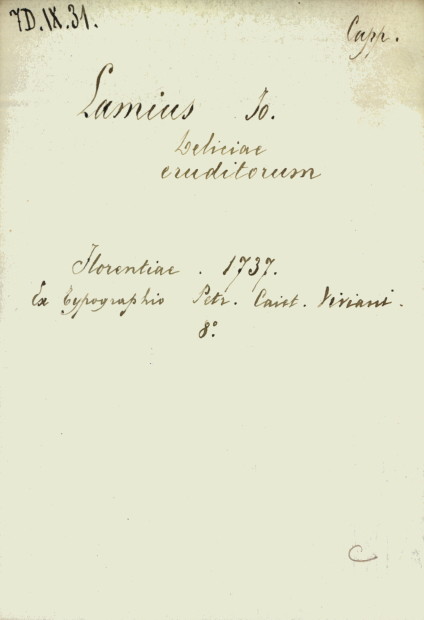 7D.IX.31.
Capp.
Lamius Jo.
Deliciae
eruditorum
Florentiae . 1737.
Ex Typographio Petr. Caiet. Viviani.
8°
C